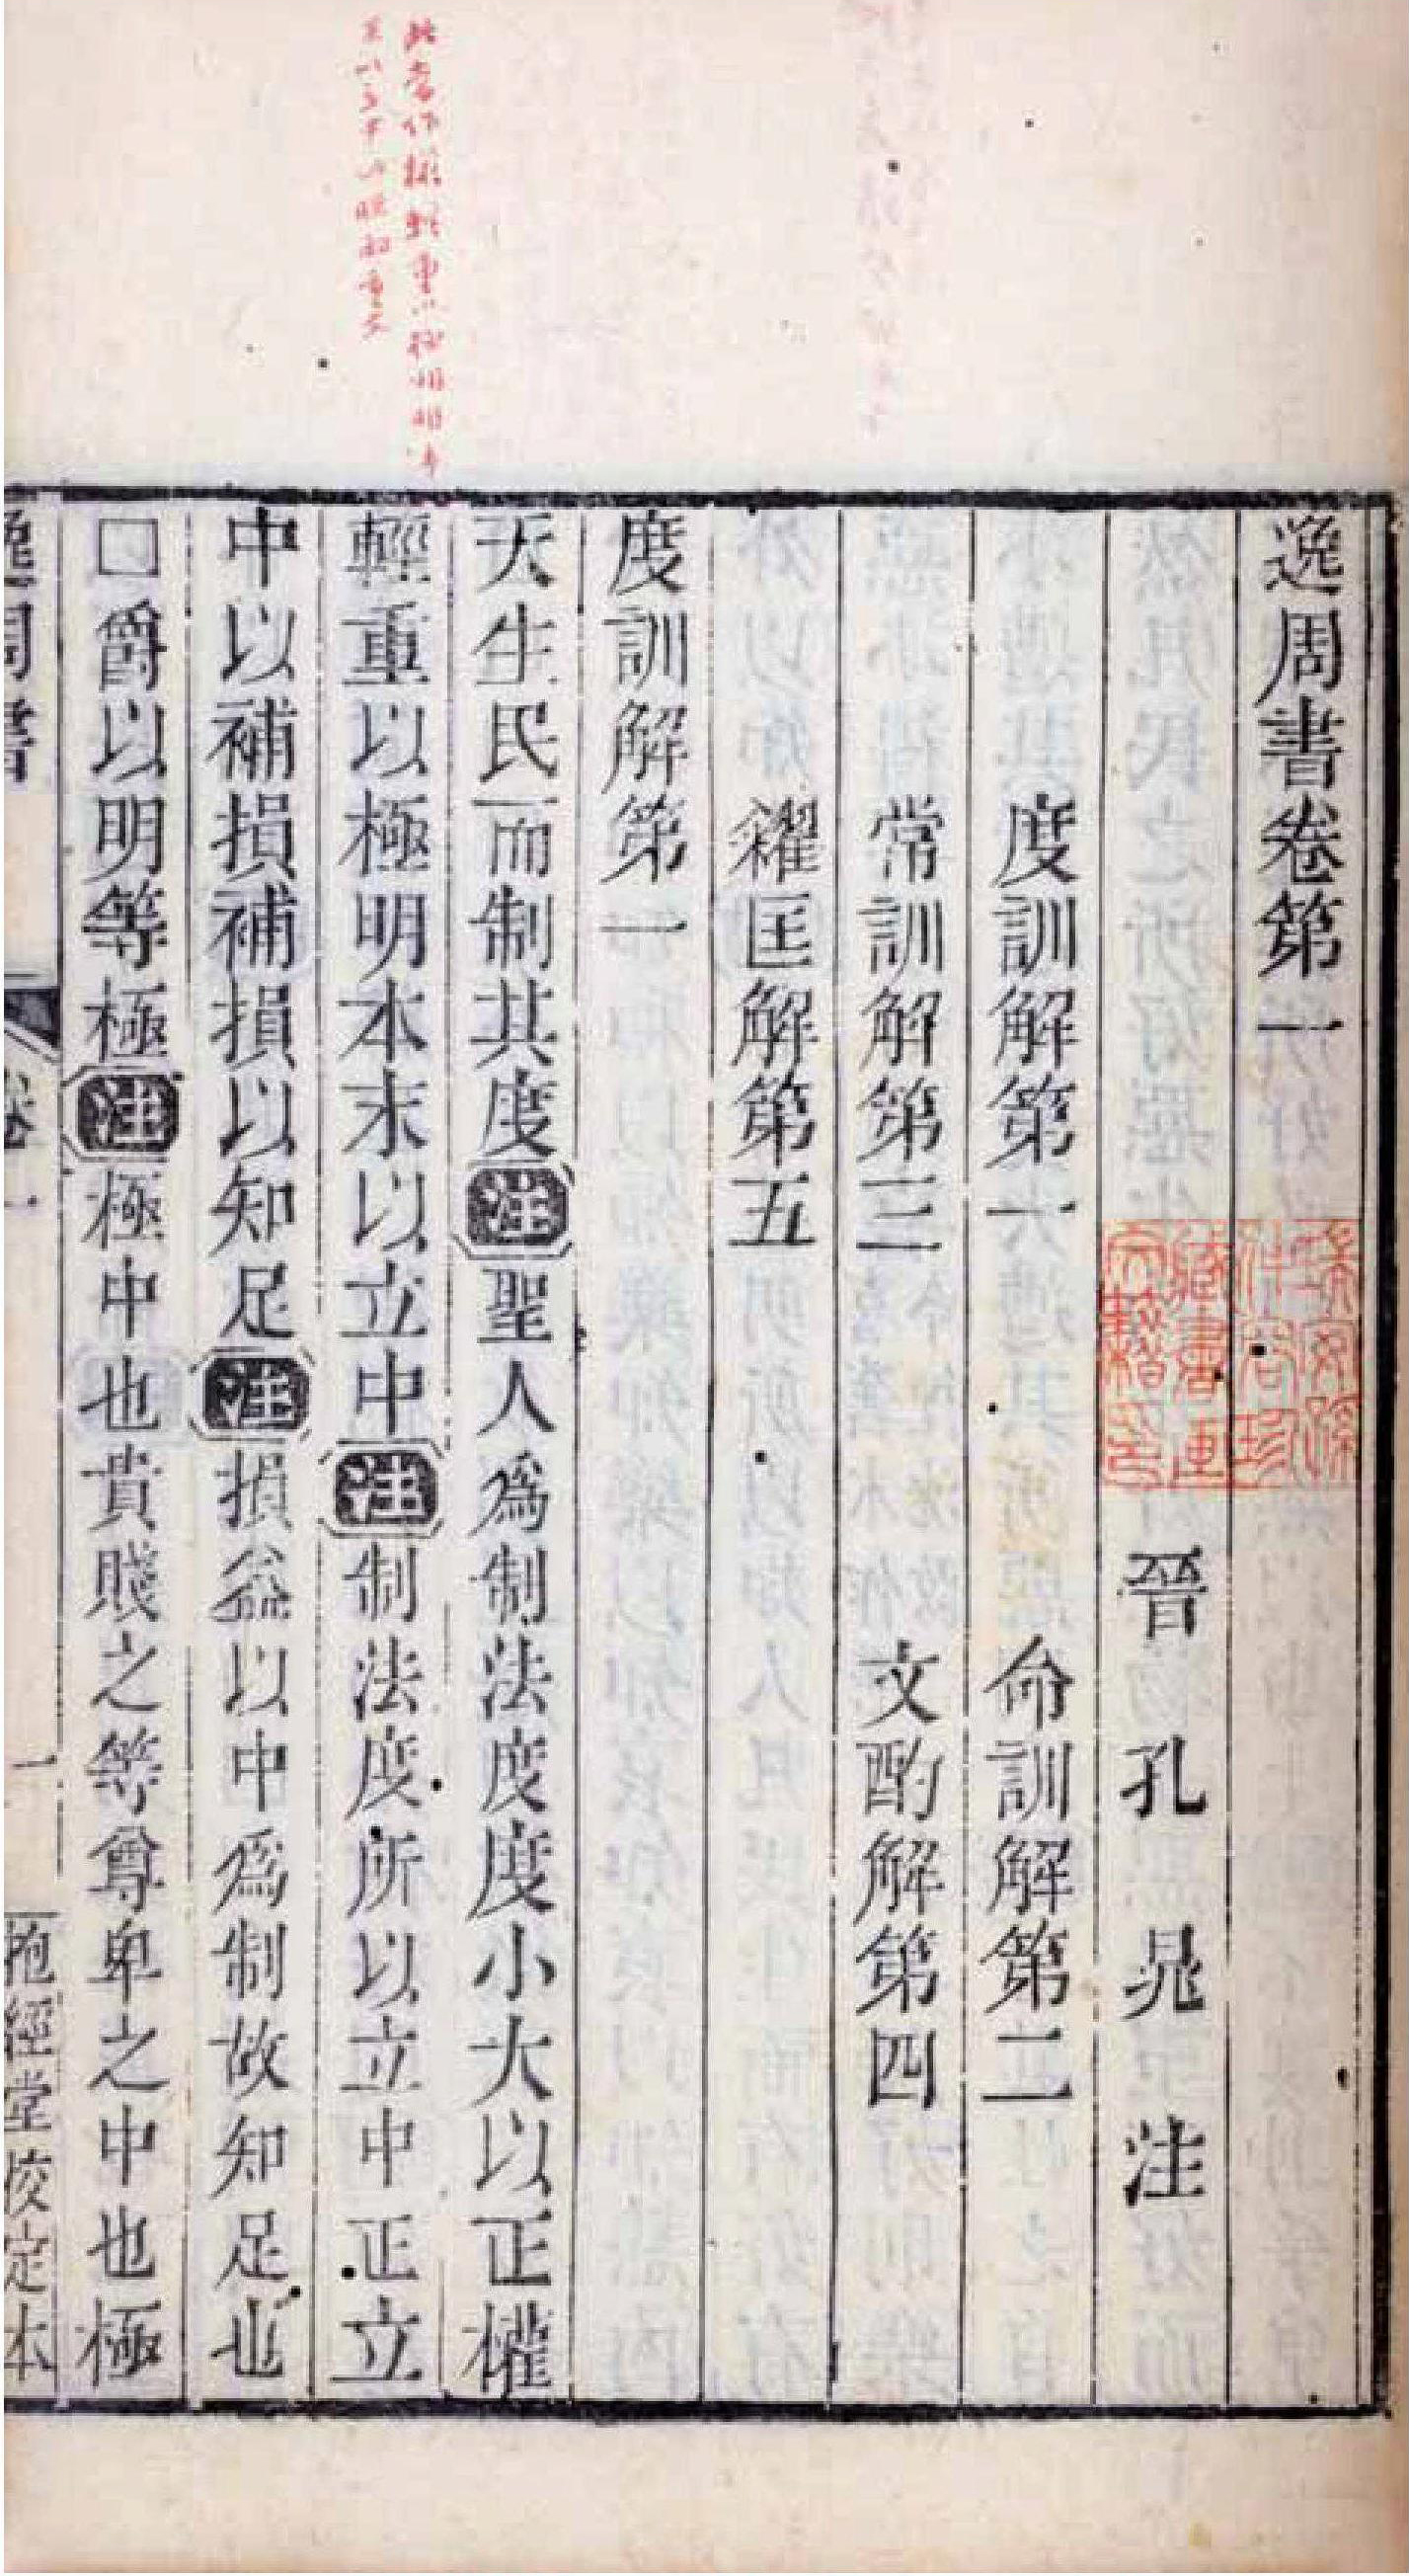 逸周書卷第一
晉孔晁注
度訓解第一　命訓解第二
常訓解第三　文酌解第四
糴匡解第五
度訓解第一
天生民而制其度注聖人爲制法度度小大以正權
輕重以極明本末以立中注制法度所以立中正立
中以補損補損以知足注損益以中爲制故知足也
□爵以明等極注極中也貴賤之等尊卑之中也極
逸周書　卷一　一　抱經堂校定本